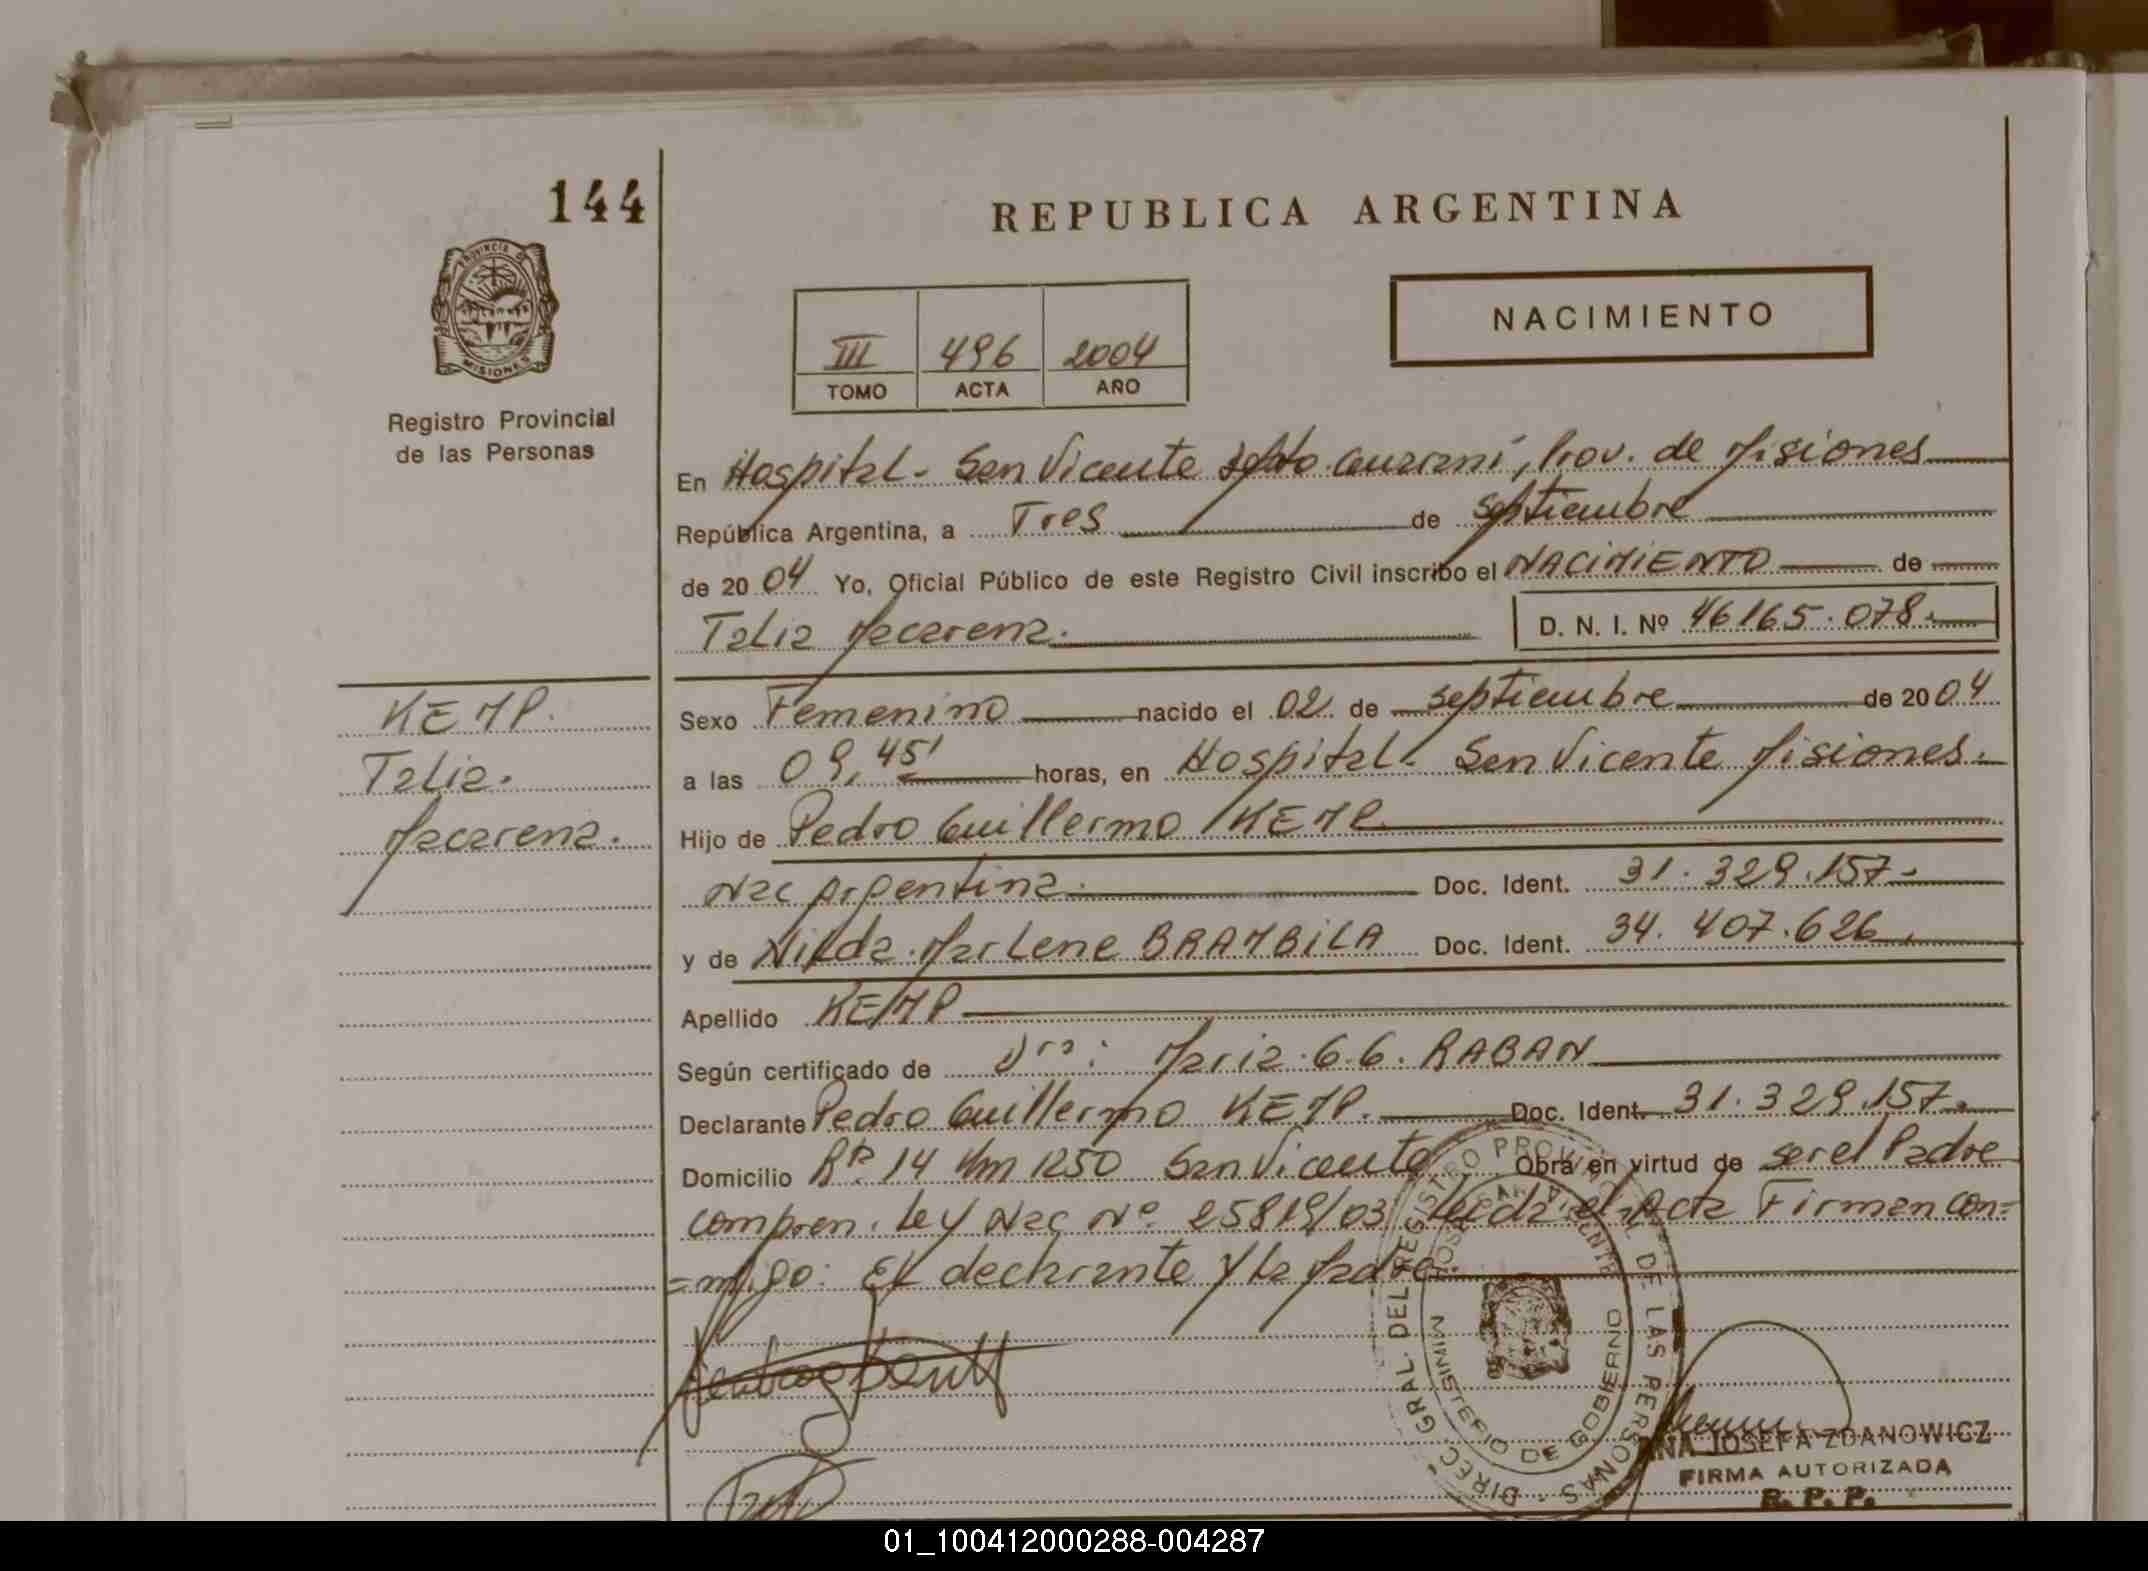 144
REPUBLICA ARGENTINA
PROVINCIA DE
MISIONES
Registro Provincial
de las Personas
III 496 2004
TOMO ACTA AÑO
NACIMIENTO
En Hospital - San Vicente Dpto Guaraní, Prov. de Misiones
República Argentina, a Tres de septiembre
de 2004 Yo, Oficial Público de este Registro Civil inscribo el NACIMIENTO de
Talia Macarena. D. N. I. Nº 46165.078.
KEMP.
Talia.
Macarena.
Sexo Femenino nacido el 02 de septiembre de 2004
a las 09,45' horas, en Hospital - San Vicente Misiones.
Hijo de Pedro Guillermo KEMP
Nac Argentina. Doc. Ident. 31.329.157.-
y de Nilda Marlene BRAMBILA Doc. Ident. 34.407.626.
Apellido KEMP
Según certificado de Dra: Maria G.G. RABAN
Declarante Pedro Guillermo KEMP. Doc. Ident. 31.329.157.
Domicilio Rta 14 Km 1250 San Vicente Obra en virtud de ser el Padre
compren. Ley Nac Nº 25819/03 Leida el Acta Firman con=
=migo: El declarante y la Madre.
DIREC. GRAL. DEL REGISTRO PROVINCIAL DE LAS PERSONAS
HOSPITAL SAN VICENTE
MINISTERIO DE GOBIERNO
ANA JOSEFA ZDANOWICZ
FIRMA AUTORIZADA
R. P. P.
01_100412000288-004287